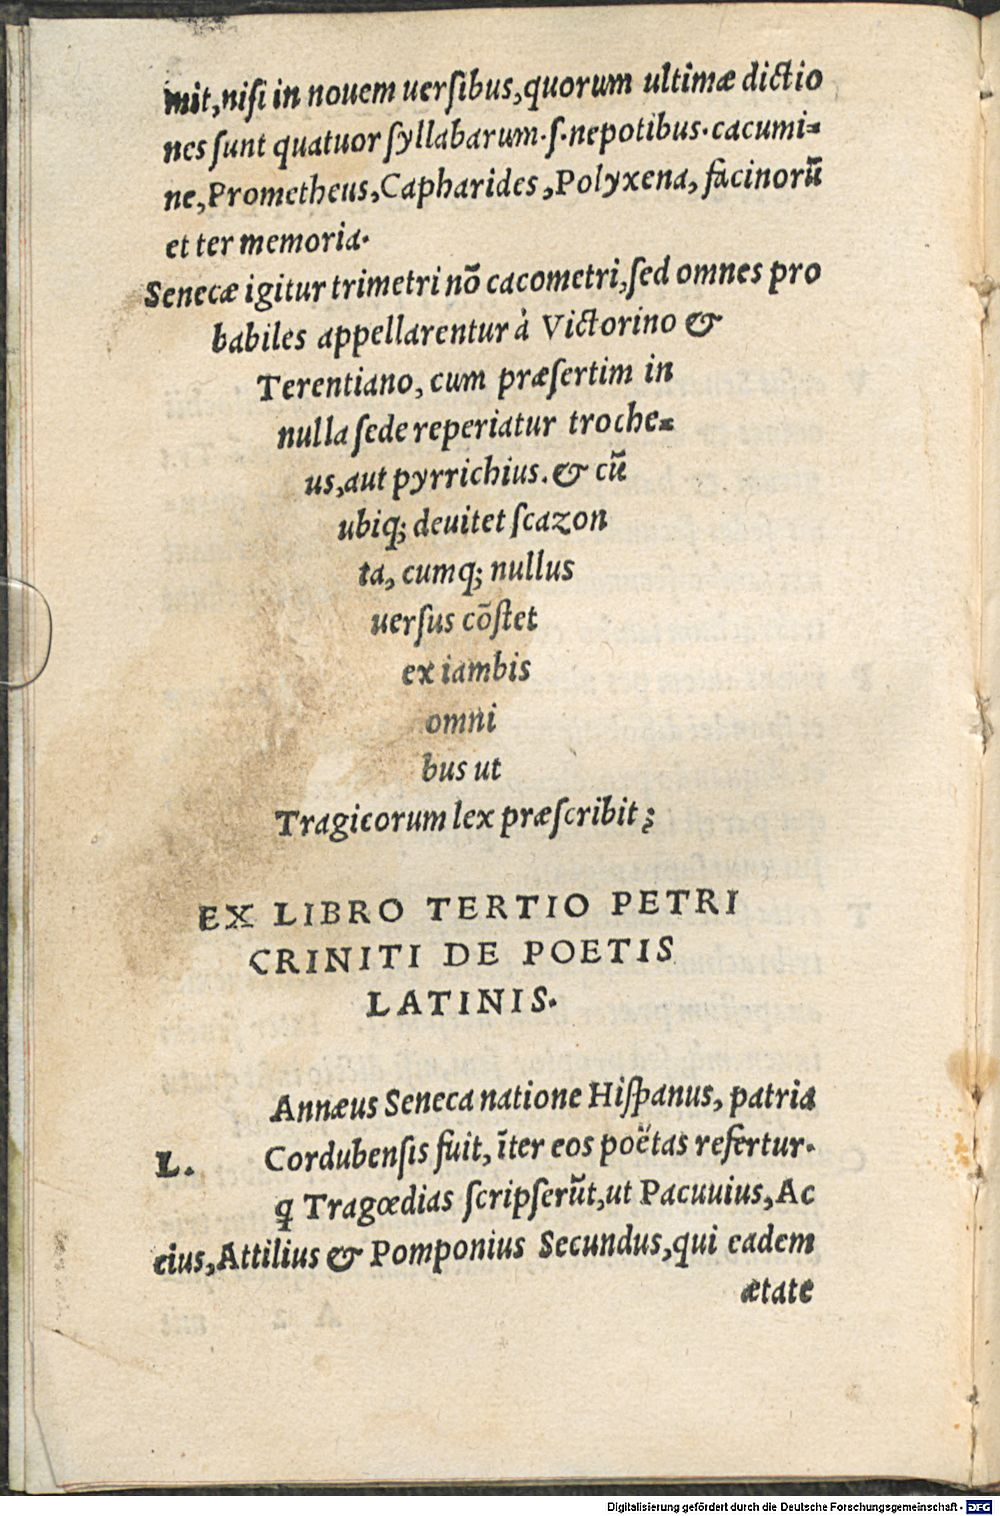 mit,niſi in nouem uerſibus,quorum ultimæ dictio
nes ſunt quatuor ſyllabarum·ſ·nepotibus·cacumi=
ne,Prometheus,Capharides,Polyxena, facinorũ
et ter memoria·
Senecæ igitur trimetri nõ cacometri,ſed omnes pro
babiles appellarentur à Victorino &
Terentiano, cum præſertim in
nulla ſede reperiatur troche=
us,aut pyrrichius. & cũ
ubiq; deuitet ſcazon
ta, cumq; nullus
uerſus cõſtet
ex iambis
omni
bus ut
Tragicorum lex præſcribit;
EX LIBRO TERTIO PETRI
CRINITI DE POETIS
LATINIS.
Annæus Seneca natione Hiſpanus, patria
L. Cordubenſis fuit, ĩter eos poëtas refertur·
ꝗ Tragœdias ſcripſerũt,ut Pacuuius,Ac
cius,Attilius & Pomponius Secundus,qui eadem
ætate
Digitalisierung gefördert durch die Deutsche Forschungsgemeinschaft - DFG